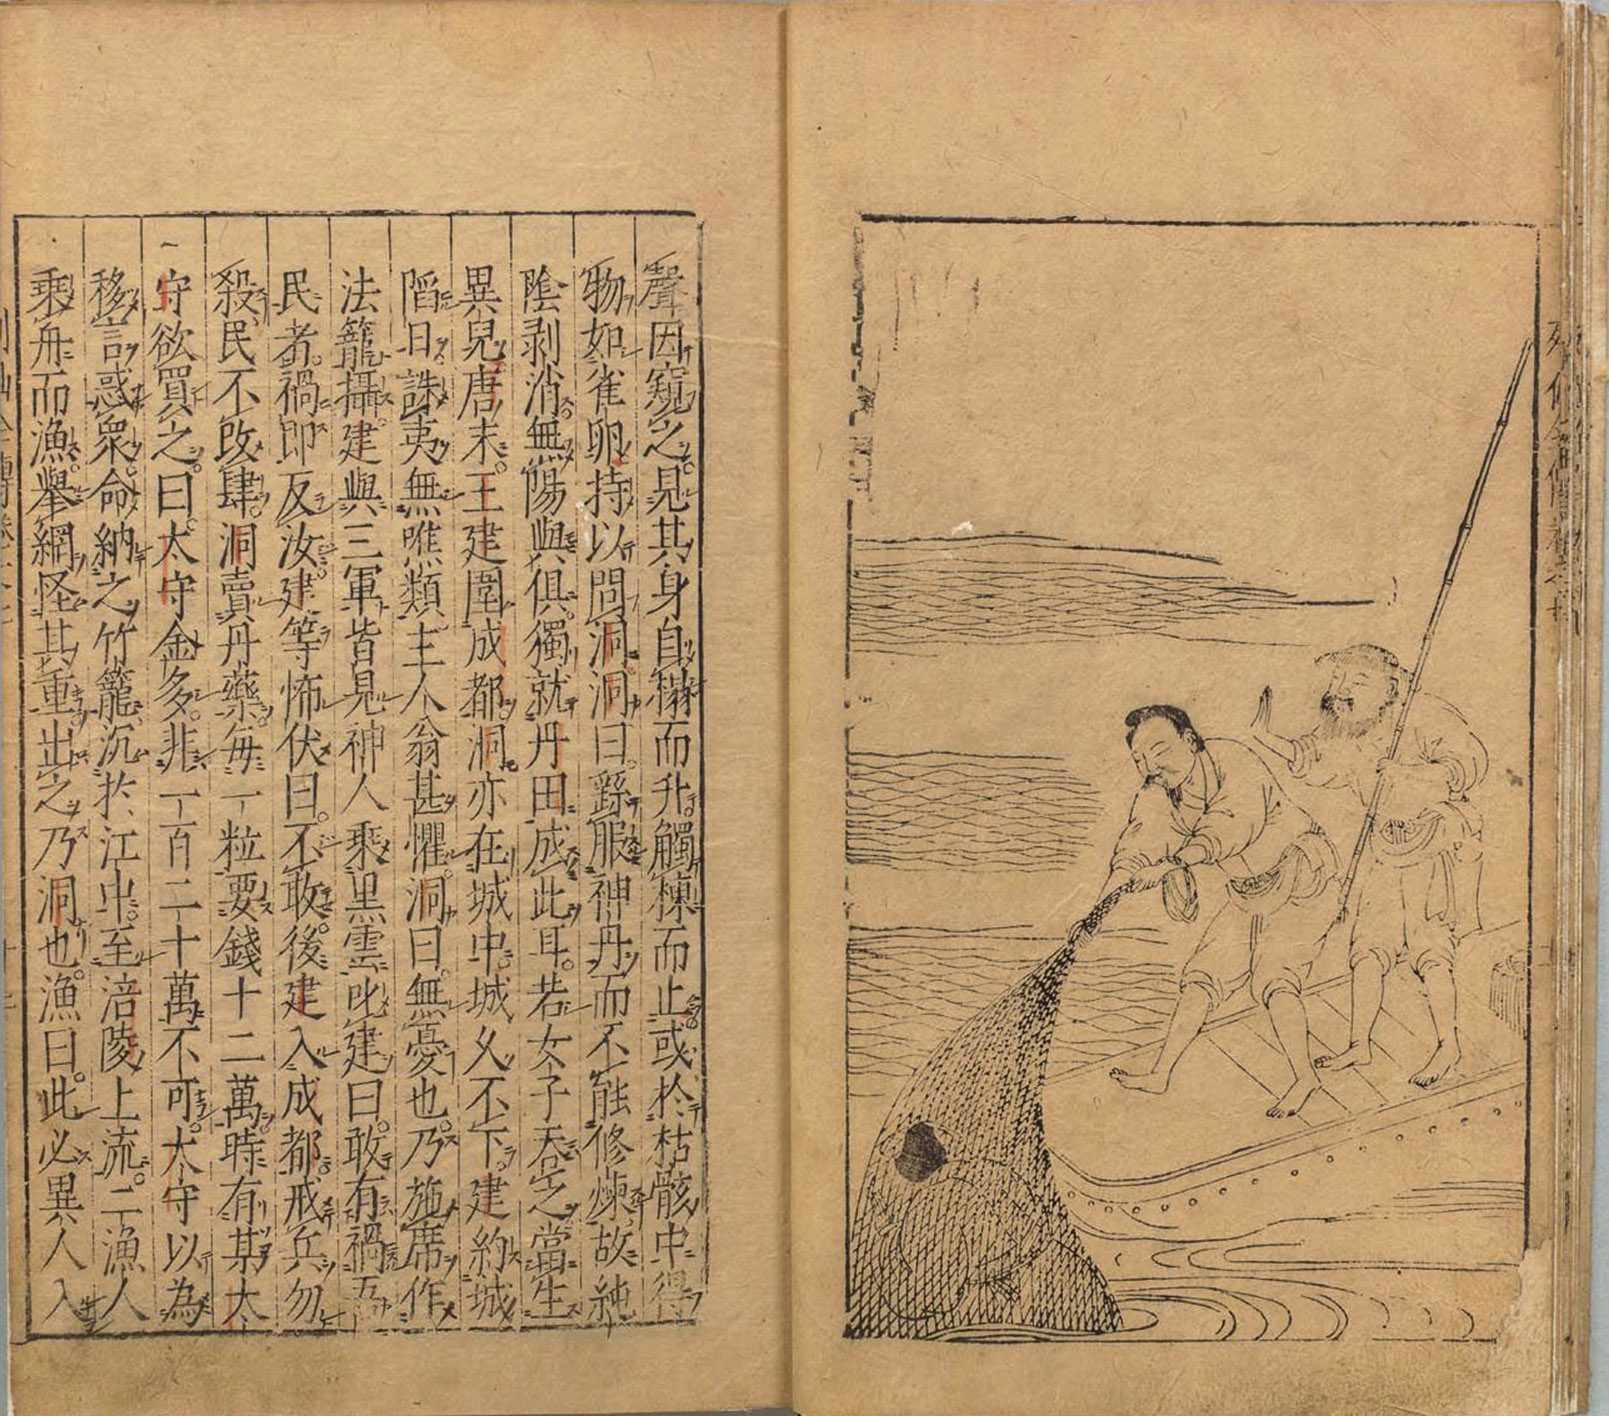 聲因窺之。見其身自榻而升。觸棟而止。或於枯骸中得
物如雀卵。持以問洞。洞曰。繇服神丹而不能修煉。故純
陰剥消。無陽與俱。獨就丹田成此耳。若女子吞之。當生
異兒。唐末。王建圍成都。洞亦在城中。城久不下。建約城
陷日。誅夷無噍類。主人翁甚懼。洞曰。無憂也。乃施席作
法籠攝。建與三軍皆見神人乗黒雲叱建曰。敢有禍吾
民者。禍即反汝。建等怖伏曰。不敢。後建入成都。戒兵勿
殺。民不改肆。洞賣丹藥。每一粒要錢十二萬。時有某太
守欲買之。曰。太守金多。非一百二十萬不可。太守以為
移言惑衆。命納之竹籠沉於江中。至涪陵上流。二漁人
乗舟而漁。舉網怪其重。出之。乃洞也。漁曰。此必異人入